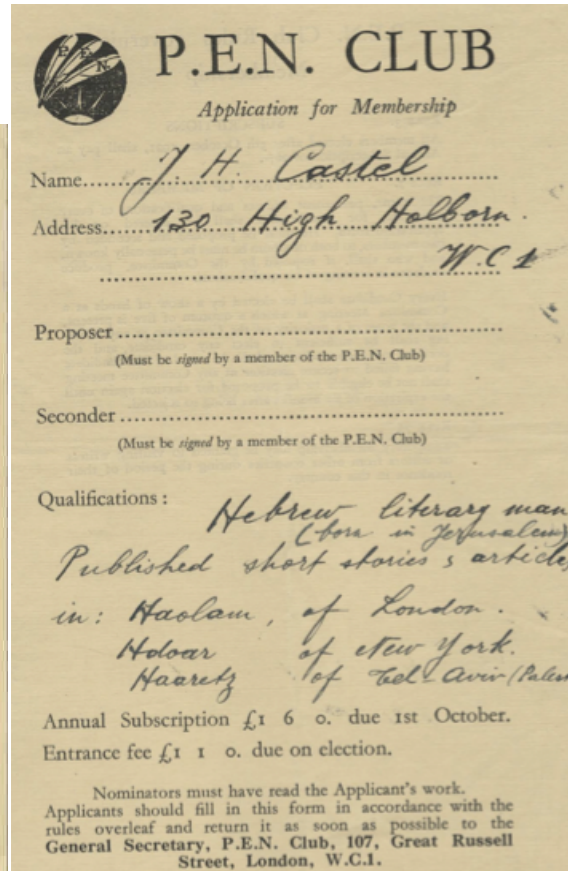 P. E. N.
P.E.N. CLUB
Application for Membership
Name.......J. H. Castel
Address.......130 High Holborn.
W.C 1
Proposer
(Must be signed by a member of the P.E.N. Club)
Seconder
(Must be signed by a member of the P.E.N. Club)
Qualifications :
Hebrew literary man
(born in Jerusalem)
Published short stories & article
in: Haolam, of London.
Hdoar of New York.
Haaretz of Tel-Aviv (Pales
Annual Subscription £1 6 0. due 1st October.
Entrance fee £1 1 0. due on election.
Nominators must have read the Applicant's work.
Applicants should fill in this form in accordance with the
rules overleaf and return it as soon as possible to the
General Secretary, P.E.N. Club, 107, Great Russell
Street, London, W.C.1.